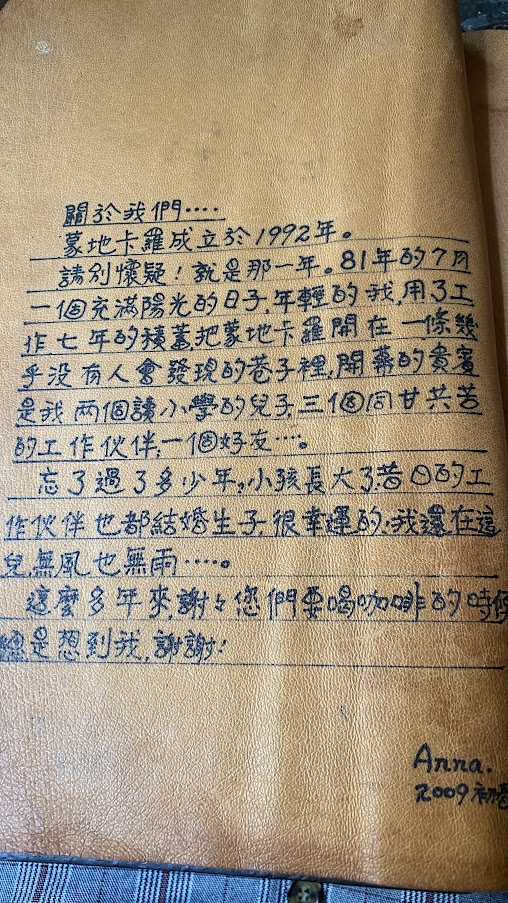 關於我們‥‥
蒙地卡羅成立於1992年。
請別懷疑！就是那一年。81年的7月
一個充滿陽光的日子,年輕的我,用了工
作七年的積蓄,把蒙地卡羅開在一條幾
乎沒有人會發現的巷子裡,開幕的貴賓
是我兩個讀小學的兒子,三個同甘共苦
的工作伙伴,一個好友‥‥。
忘了過了多少年,小孩長大了,昔日的工
作伙伴也都結婚生子,很幸運的,我還在這
兒,無風也無雨‥‥‥。
這麼多年來,謝々您們要喝咖啡的時候
總是想到我,謝謝!
Anna.
2009初春